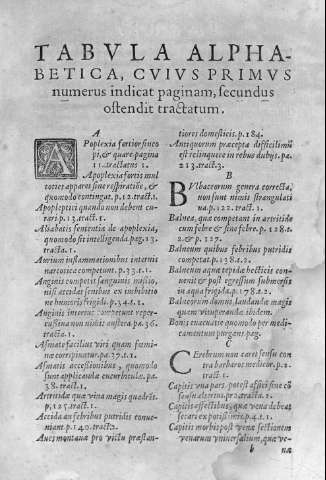 TABVLA ALPHA-
BETICA, CVIVS PRIMVS
numerus indicat paginam, secundus
ostendit tractatum.
A
Apoplexia fortior sinco
pi, & quare. pagina
11. tractatus 1.
Apoplexia fortis mul
toties apparet sine respiratiõe, &
quomodo cont. p. 12. tract. 1.
Apopleptici quando non debent cu
rari. p. 13. tract. 1.
Aliabatis sententia de apoplexia,
quomodo sit intelligenda. pag. 13.
tracta. 1.
Aurium inflammationibus internis
narcotica competunt. p. 33. t. 1.
Anginis competit sanguinis missio,
nisi accidat senibus ex
humoris frigidi. p. 34. t. 1.
Anginis internis competunt reper-
cusiua non nimis austera. pa. 36.
tracta. 1.
Asmate facilius viri quam fœmi
næ corripiuntur. pa. 37. t. 1.
Asmatis accessionibus, quomodo
sunt applicandæ cucurbitulæ. pa.
38. tract. 1.
Artritidæ quæ vina magis quadrẽt.
p. 125. tract. 1.
Acida an febribus putridis conue-
niant. p. 140. tract. 2.
Aues montana pro victu præstan-
tiores domesticis. p. 184.
Antiquorum præcepta difficilimũ
est relinquere in rebus dubijs. pa.
213. tract. 3.
B
Bulbacorum genera correcta,
non sunt nimis strangulati
ua. p. 122. tract. 1.
Balnea, quæ competant in artritide
cum febre & sine febre. p. 128. t.
2. & p. 127.
Balneum quibus febribus putridis
competat. p. 138. t. 2.
Balneum aquæ tepidæ hecticis con-
uenit & post egressum submersio
in aqua frigida. p. 178. t. 2.
Balneorum domini, laudandæ magis
quem vituperandæ ibidem.
Bonis euacuatis quomodo per medi-
camentum purgans. pag.
C
Cerebrum non caret sensu con
tra barbaros medicos. p. 2.
tract. 1.
Capitis vna pars potest affici sine cõ
sensu alterius. pro. tracta. 1.
Capitis affectibus, quæ vena debeat
secari ex potissimis. p. 4. t. 1.
Capitis morbis post venæ sectionem
venarum vniuersalium, quæ ve-
b næ